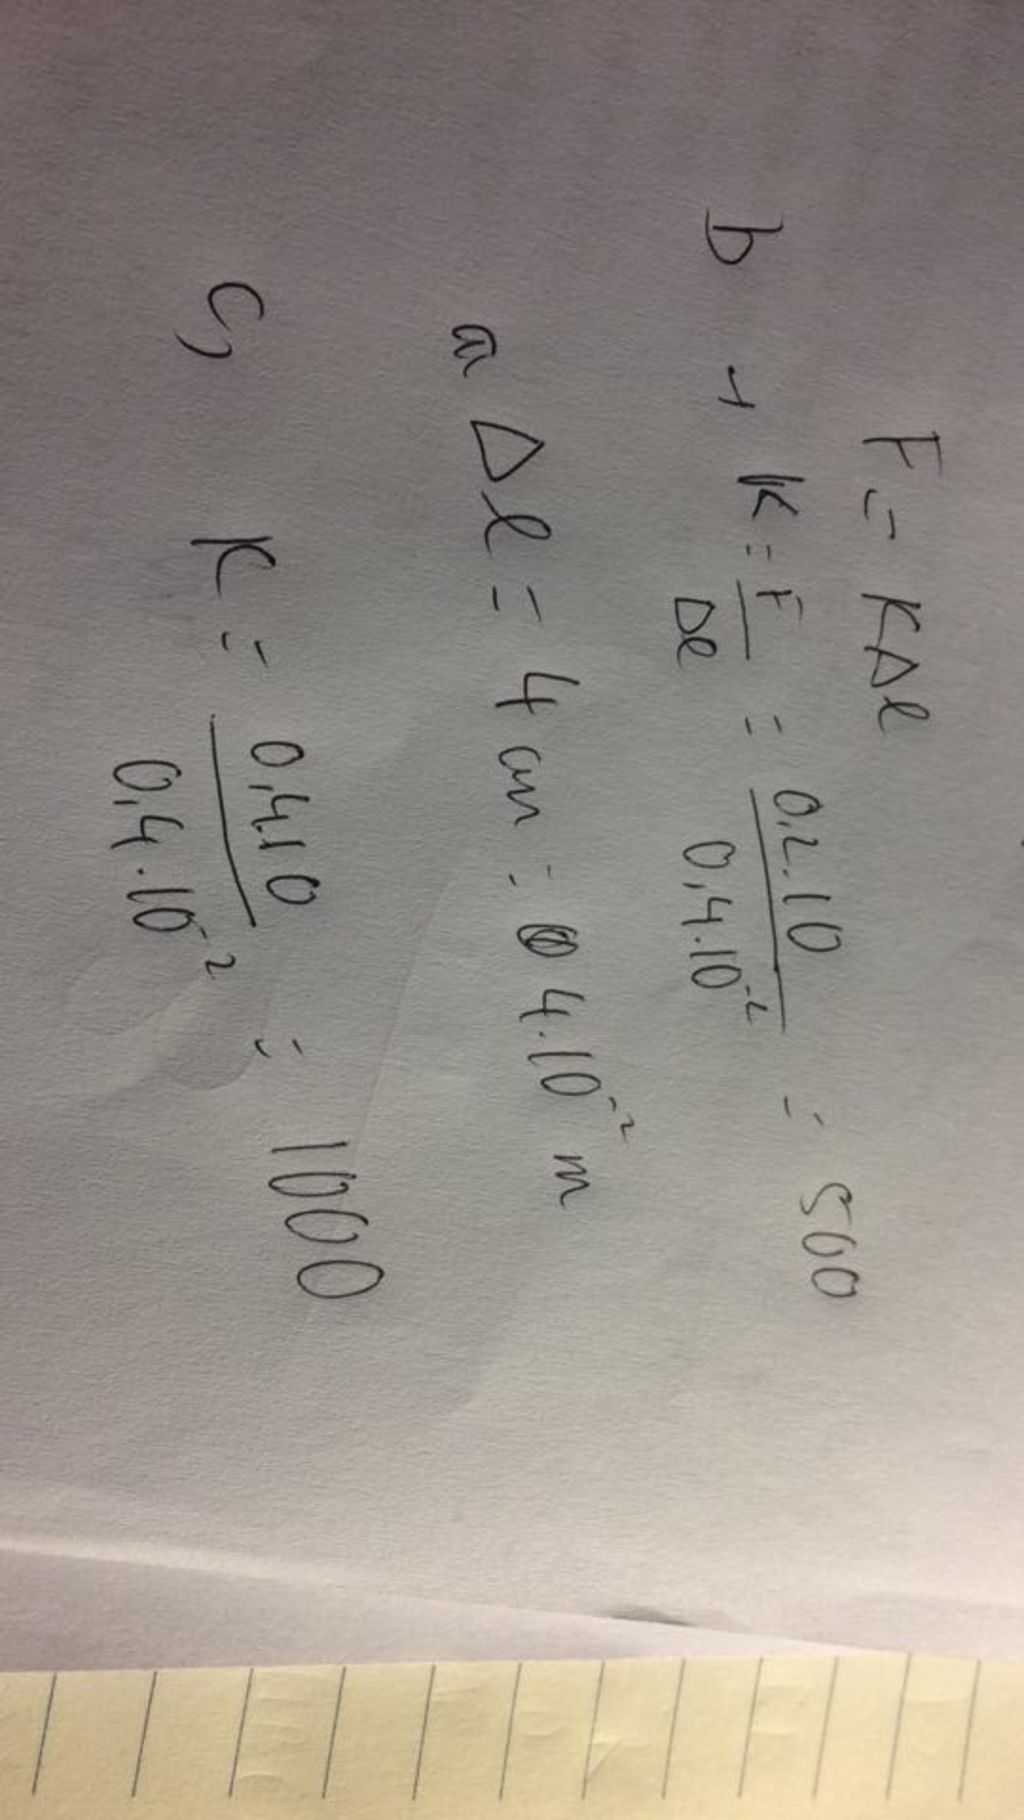 F = KΔl
b + K = F/Δl = 0,2.10/0,4.10⁻² = 500
a Δl = 4 cm = 4.10⁻² m
c, K = 0,4.10/0,4.10⁻² = 1000